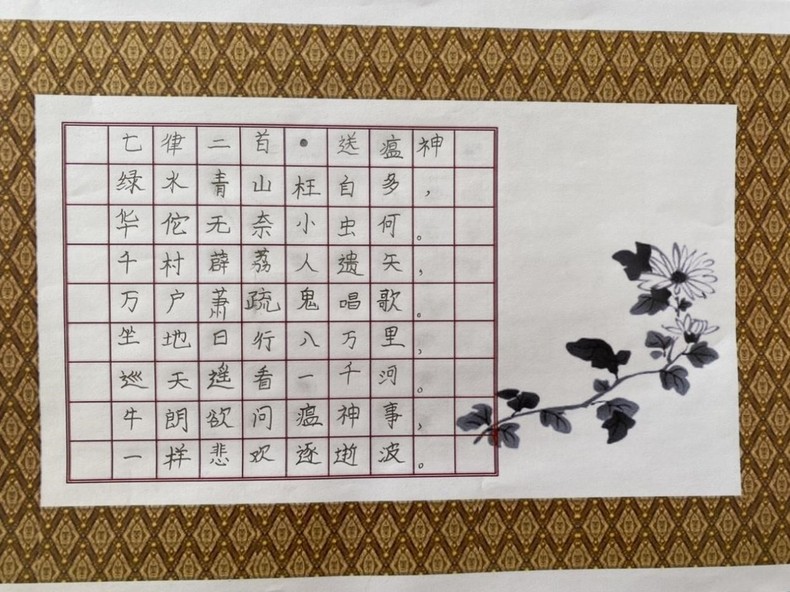 七律二首·送瘟神
绿水青山枉自多，
华佗无奈小虫何。
千村薜荔人遗矢，
万户萧疏鬼唱歌。
坐地日行八万里，
巡天遥看一千河。
牛朗欲问瘟神事，
一样悲欢逐逝波。